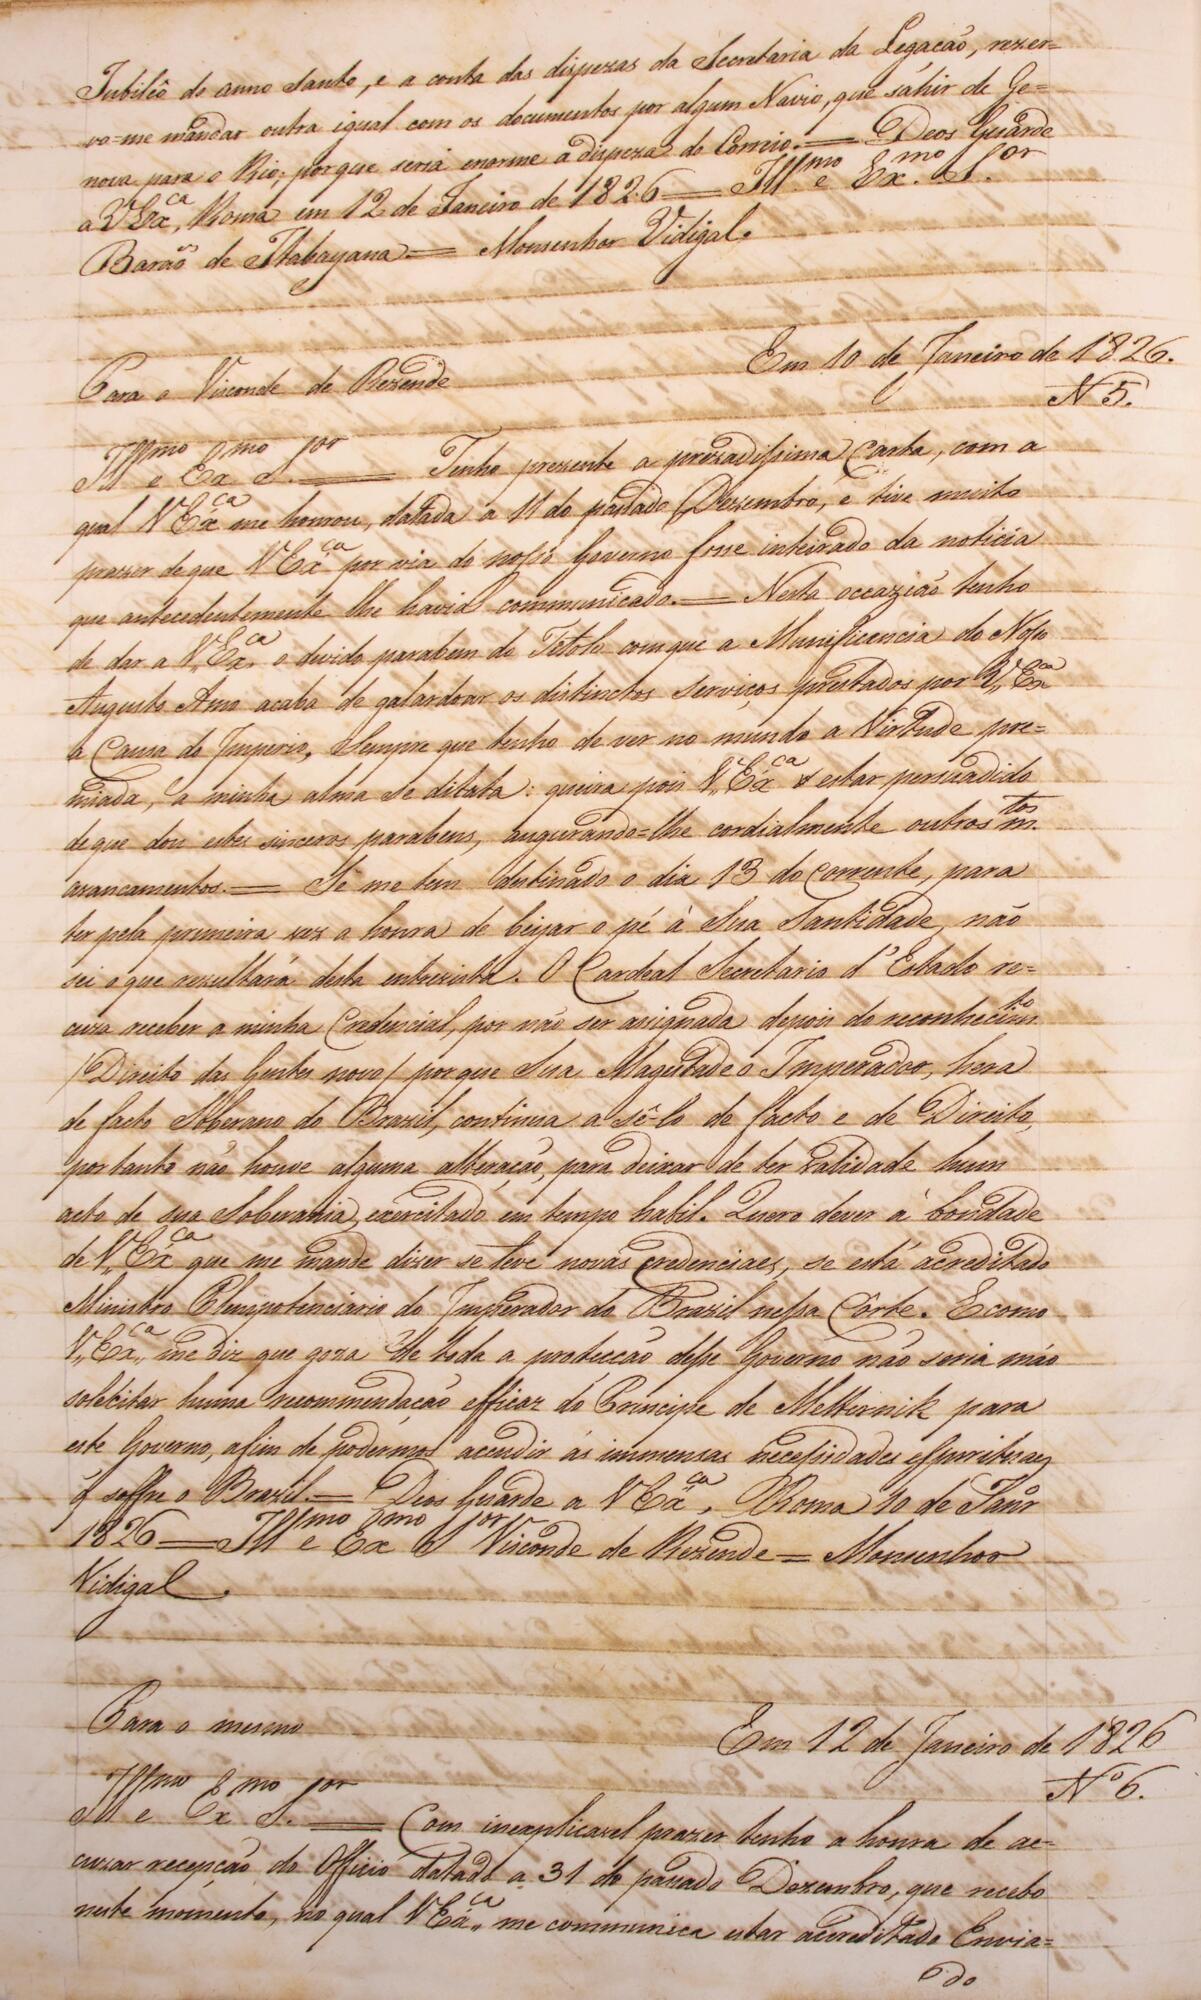 Jubilêo do anno Santo, e a conta das dispezas da Secretaria da Legacão, rezer-
vo=me mandar outra igual com os documentos por algum Navio, que sahir de Ge=
nova para o Rio; porque seria enorme a dispeza do Correio.= Deos Guarde
a V Exca, Roma em 12 de Janeiro de 1826= Illmo e Exmo Sor
Barão de Itabayana= Monsenhor Vidigal.
Para o Visconde de Rezende Em 10 de Janeiro de 1826.
N 5.
Illmo e Exmo Sor= Tenho prezente a prezadissima Carta, com a
qual V Exca me honrou, datada a 11 do passado Dezembro, e tive muito
prazer de que V Exca por via do nosso Governo fosse inteirado da noticia
que antecedentemente lhe havia communicado.= Nesta occazião tenho
de dar a V. Exca. o devido parabem do Titolo com que a Munificencia do Nosso
Augusto Amo acaba de galardoar os distinctos serviços prestados por V. Exca
á Causa do Imperio, Sempre que tenho de ver no mundo a Virtude pre=
miada, a minha alma se dilata: queira pois V. Exca estar persuadido
de que dou estes sinceros parabens, augurando=lhe cordialmente outros mtos
avancamentos.= Se me tem destinado o dia 13 do Corrente, para
ter pela primeira vez a honra de beijar o pé à Sua Santidade, não
sei o que rezultará desta entrevista. O Cardeal Secretario d'Estado re=
cuza receber a minha Credencial, por não ser asignada depois do reconhecimto
/Direito das Gentes novo/ porque Sua Magestade o Imperador, hera
de facto Soberano do Brazil, continua a sê-lo de facto e de Direito,
por tanto não houve alguma alteração, para deixar de ter validade hum
acto de sua Soberania, exercitado em tempo habil. Quero dever á bondade
de V. Exca que me mande dizer se teve novas credenciaes, se está acreditado
Ministro Plenipotenciario do Imperador do Brazil nessa Corte. E como
V,, Exca,, me diz que goza de toda a protecção desse Governo não seria máo
solecitar huma recommendação efficaz do Principe de Metternik para
este Governo, afim de podermos accudir ás immensas necessidades espirituaes
q̃ soffre o Brazil.= Deos Guarde a V Exca, Roma 10 de Janr
1826= Illmo e Exmo Sor Visconde de Rezende= Monsenhor
Vidigal.
Para o mesmo Em 12 de Janeiro de 1826
No 6.
Illmo e Exmo Sor.= Com inexplicavel prazer tenho a honra de ac=
cuzar recepção do Officio datado a 31 do passado Dezembro, que recebo
neste momento, no qual V Exca,, me communica estar acreditado Envia=
do